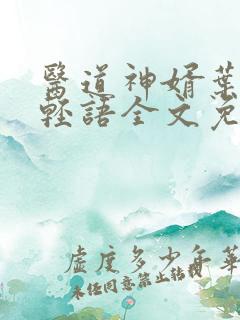 醫道神婿葉
輕語全文免
虛度多少年華
未任同意禁止轉載